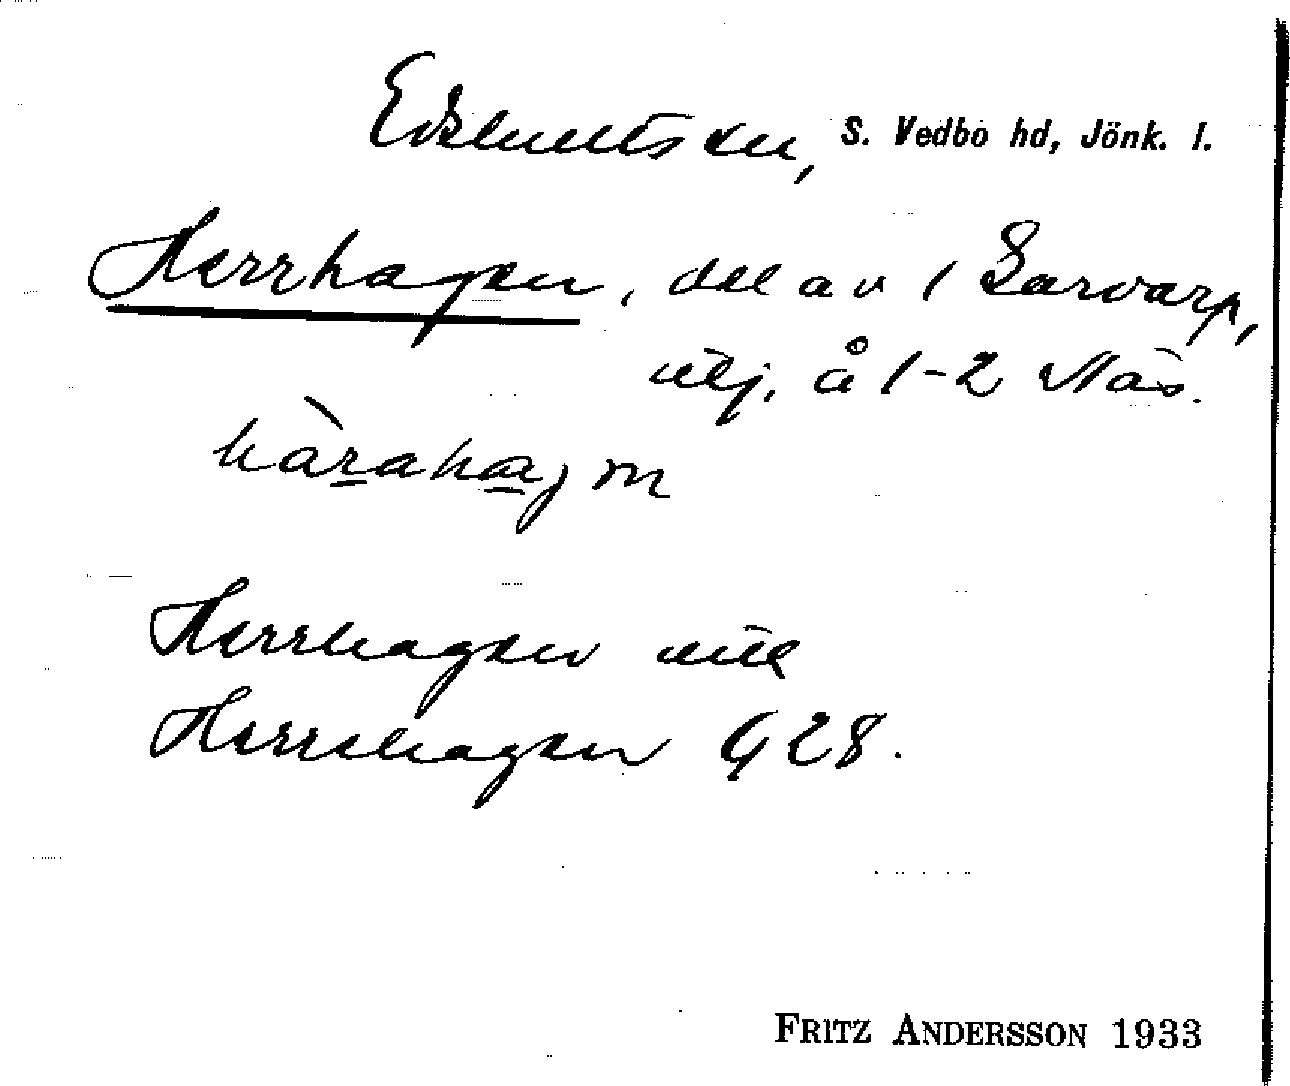 Edshultsden, S. Vedbo hd, Jönk. l.
Herrhagen, del av 1 Sarvarp,
utj. å 1-2 Näs.
hàrahajm
Herrhagen
Herrehagen G 28.
FRITZ ANDERSSON 1933